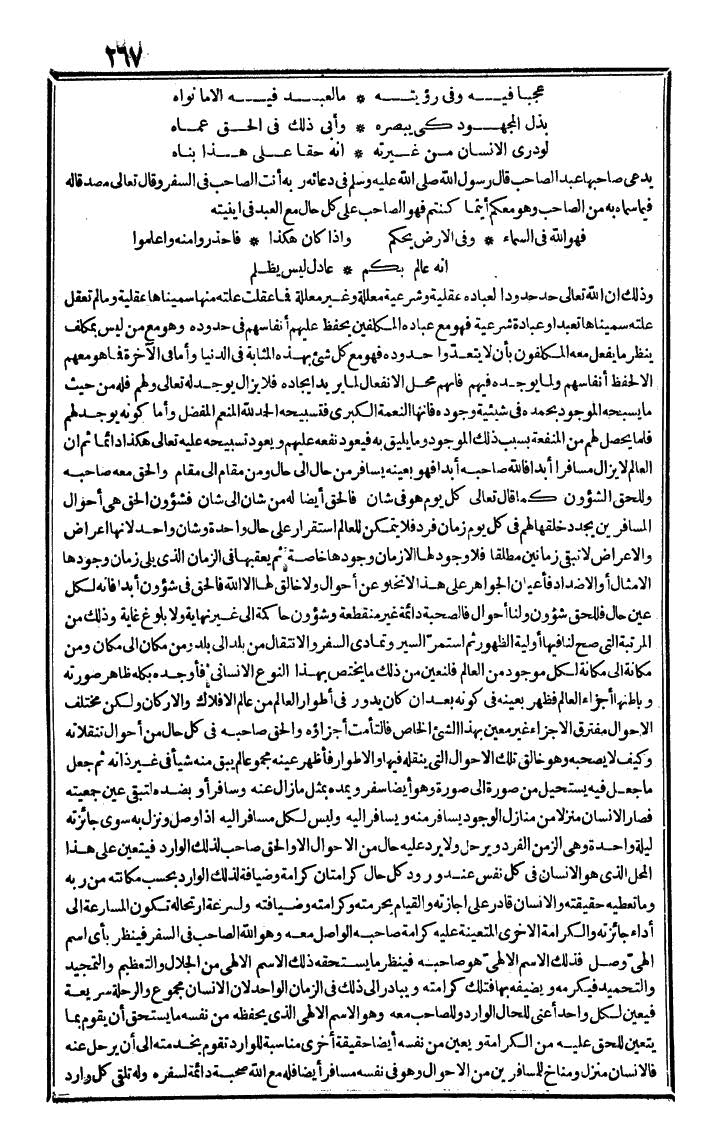 ٢٦٧
عجبا فيـــه وفى رؤيتـــه * مالعبـــد فيـــه الا مانواه
بذل المجهـــود كى يبصره * وأبى ذلك فى الحـق عمـاه
لودرى الانسان مـن غـيرته * انه حقا عـلى هـذا بناه
يدعى صاحبها عبد الصاحب قال رسول الله صلى الله عليه وسلم فى دعائه ربه أنت الصاحب فى السفر وقال تعالى مصدقا له
فيما سماه به من الصاحب وهو معكم أينما كنتم فهو الصاحب على كل حال مع العبد فى اينيته
فهو الله فى السماء * وفى الارض يحكم واذا كان هكذا * فاحذروا منه واعلموا
انه عالم بكم * عادل ليس يظلم
وذلك ان الله تعالى حد حدودا لعباده عقلية وشرعية معللة وغير معللة فما عقلت علته منها سميناها عقلية وما لم تعقل
علته سميناها تعبدا وعبادة شرعية فهو مع عباده المكلفين يحفظ عليهم أنفاسهم فى حدوده وهو مع من ليس بمكلف
ينظر ما يفعل معه المكلفون بأن لا يتعدّوا حدوده فهو مع كل شئ بهذه المثابة فى الدنيا وأما فى الآخرة فما هو معهم
الا لحفظ أنفاسهم ولما يوجده فيهم فانهم محل الانفعال لما يريد ايجاده فلا يزال يوجد له تعالى ولهم فله من حيث
ما يسبحه الموجود بحمده فى شيئية وجوده فانها النعمة الكبرى فتسبيحه الحمد لله المنعم المفضل وأما كونه يوجد لهم
فلما يحصل لهم من المنفعة بسبب ذلك الموجود وما يليق به فيعود نفعه عليهم ويعود تسبيحه عليه تعالى هكذا دائما ثم ان
العالم لا يزال مسافرا أبدا فالله صاحبه أبدا فهو بعينه يسافر من حال الى حال ومن مقام الى مقام والحق معه صاحبه
وللحق الشؤون كما قال تعالى كل يوم هو فى شان فالحق أيضا له من شان الى شان فشؤون الحق هى أحوال
المسافرين يجدد خلقها لهم فى كل يوم زمان فرد فلا يتمكن للعالم استقرار على حال واحدة وشان واحد لانها اعراض
والاعراض لا تبقى زمانين مطلقا فلا وجود لها الا زمان وجودها خاصة ثم يعقبها فى الزمان الذى يلى زمان وجودها
الامثال أو الاضداد فأعيان الجواهر على هذا لا تخلو عن أحوال ولا خالق لها الا الله فالحق فى شؤون أبدا فانه لكل
عين حال فللحق شؤون ولنا أحوال فالصحبة دائمة غير منقطعة وشؤون حاكمة الى غير نهاية ولا بلوغ غاية وذلك من
المرتبة التى صح لنا فيها أولية الظهور ثم استمرّ السير وتمادى السفر والانتقال من بلد الى بلد ومن مكان الى مكان ومن
مكانة الى مكانة لكل موجود من العالم فلنعين من ذلك ما يختص بهذا النوع الانسانى فأوجده بكله ظاهر صورته
وباطنها أجزاء العالم فظهر بعينه فى كونه بعد ان كان يدور فى أطوار العالم من عالم الافلاك والاركان ولكن مختلف
الاحوال مفترق الاجزاء غير معين بهذا الشئ الخاص فالتأمت أجزاؤه والحق صاحبه فى كل حال من أحوال تنقلاته
وكيف لا يصحبه وهو خالق تلك الاحوال التى ينقله فيها والاطوار فأظهر عينه مجموعا لم يبق منه شيأ فى غير ذاته ثم جعل
ما جعل فيه يستحيل من صورة الى صورة وهو أيضا سفر ويمده بمثل ما زال عنه وسافر أو بضده لتبقى عين جمعيته
فصار الانسان منزلا من منازل الوجود يسافر منه ويسافر اليه وليس لكل مسافر اليه اذا وصل ونزل به سوى جائزته
ليلة واحدة وهى الزمن الفرد ويرحل ولا يرد عليه حال من الاحوال الا والحق صاحب لذلك الوارد فيتعين على هذا
المحل الذى هو الانسان فى كل نفس عند ورود كل حال كرامتان كرامة وضيافة لذلك الوارد بحسب مكانته من ربه
وما تعطيه حقيقته والانسان قادر على اجازته والقيام بحرمته وكرامته وضيافته ولسرعة ارتحاله تكون المسارعة الى
أداء جائزته والكرامة الاخرى المتعينة عليه كرامة صاحبه الواصل معه وهو الله الصاحب فى السفر فينظر بأى اسم
الهىّ وصل فذلك الاسم الالهىّ هو صاحبه فينظر ما يستحقه ذلك الاسم الالهى من الجلال والتعظيم والتمجيد
والتحميد فيكرمه ويضيفه بها فتلك كرامته ويبادر الى ذلك فى الزمان الواحد لان الانسان مجموع والرحلة سريعة
فيعين لكل واحد أعنى للحال الوارد وللصاحب معه وهو الاسم الالهى الذى يحفظه من نفسه ما يستحق أن يقوم بما
يتعين للحق عليه من الكرامة ويعين من نفسه أيضا حقيقة أخرى مناسبة للوارد تقوم بخدمته الى أن يرحل عنه
فالانسان منزل ومناخ للمسافرين من الاحوال وهو فى نفسه مسافر أيضا فله مع الله صحبة دائمة لسفره وله تلقى كل وارد